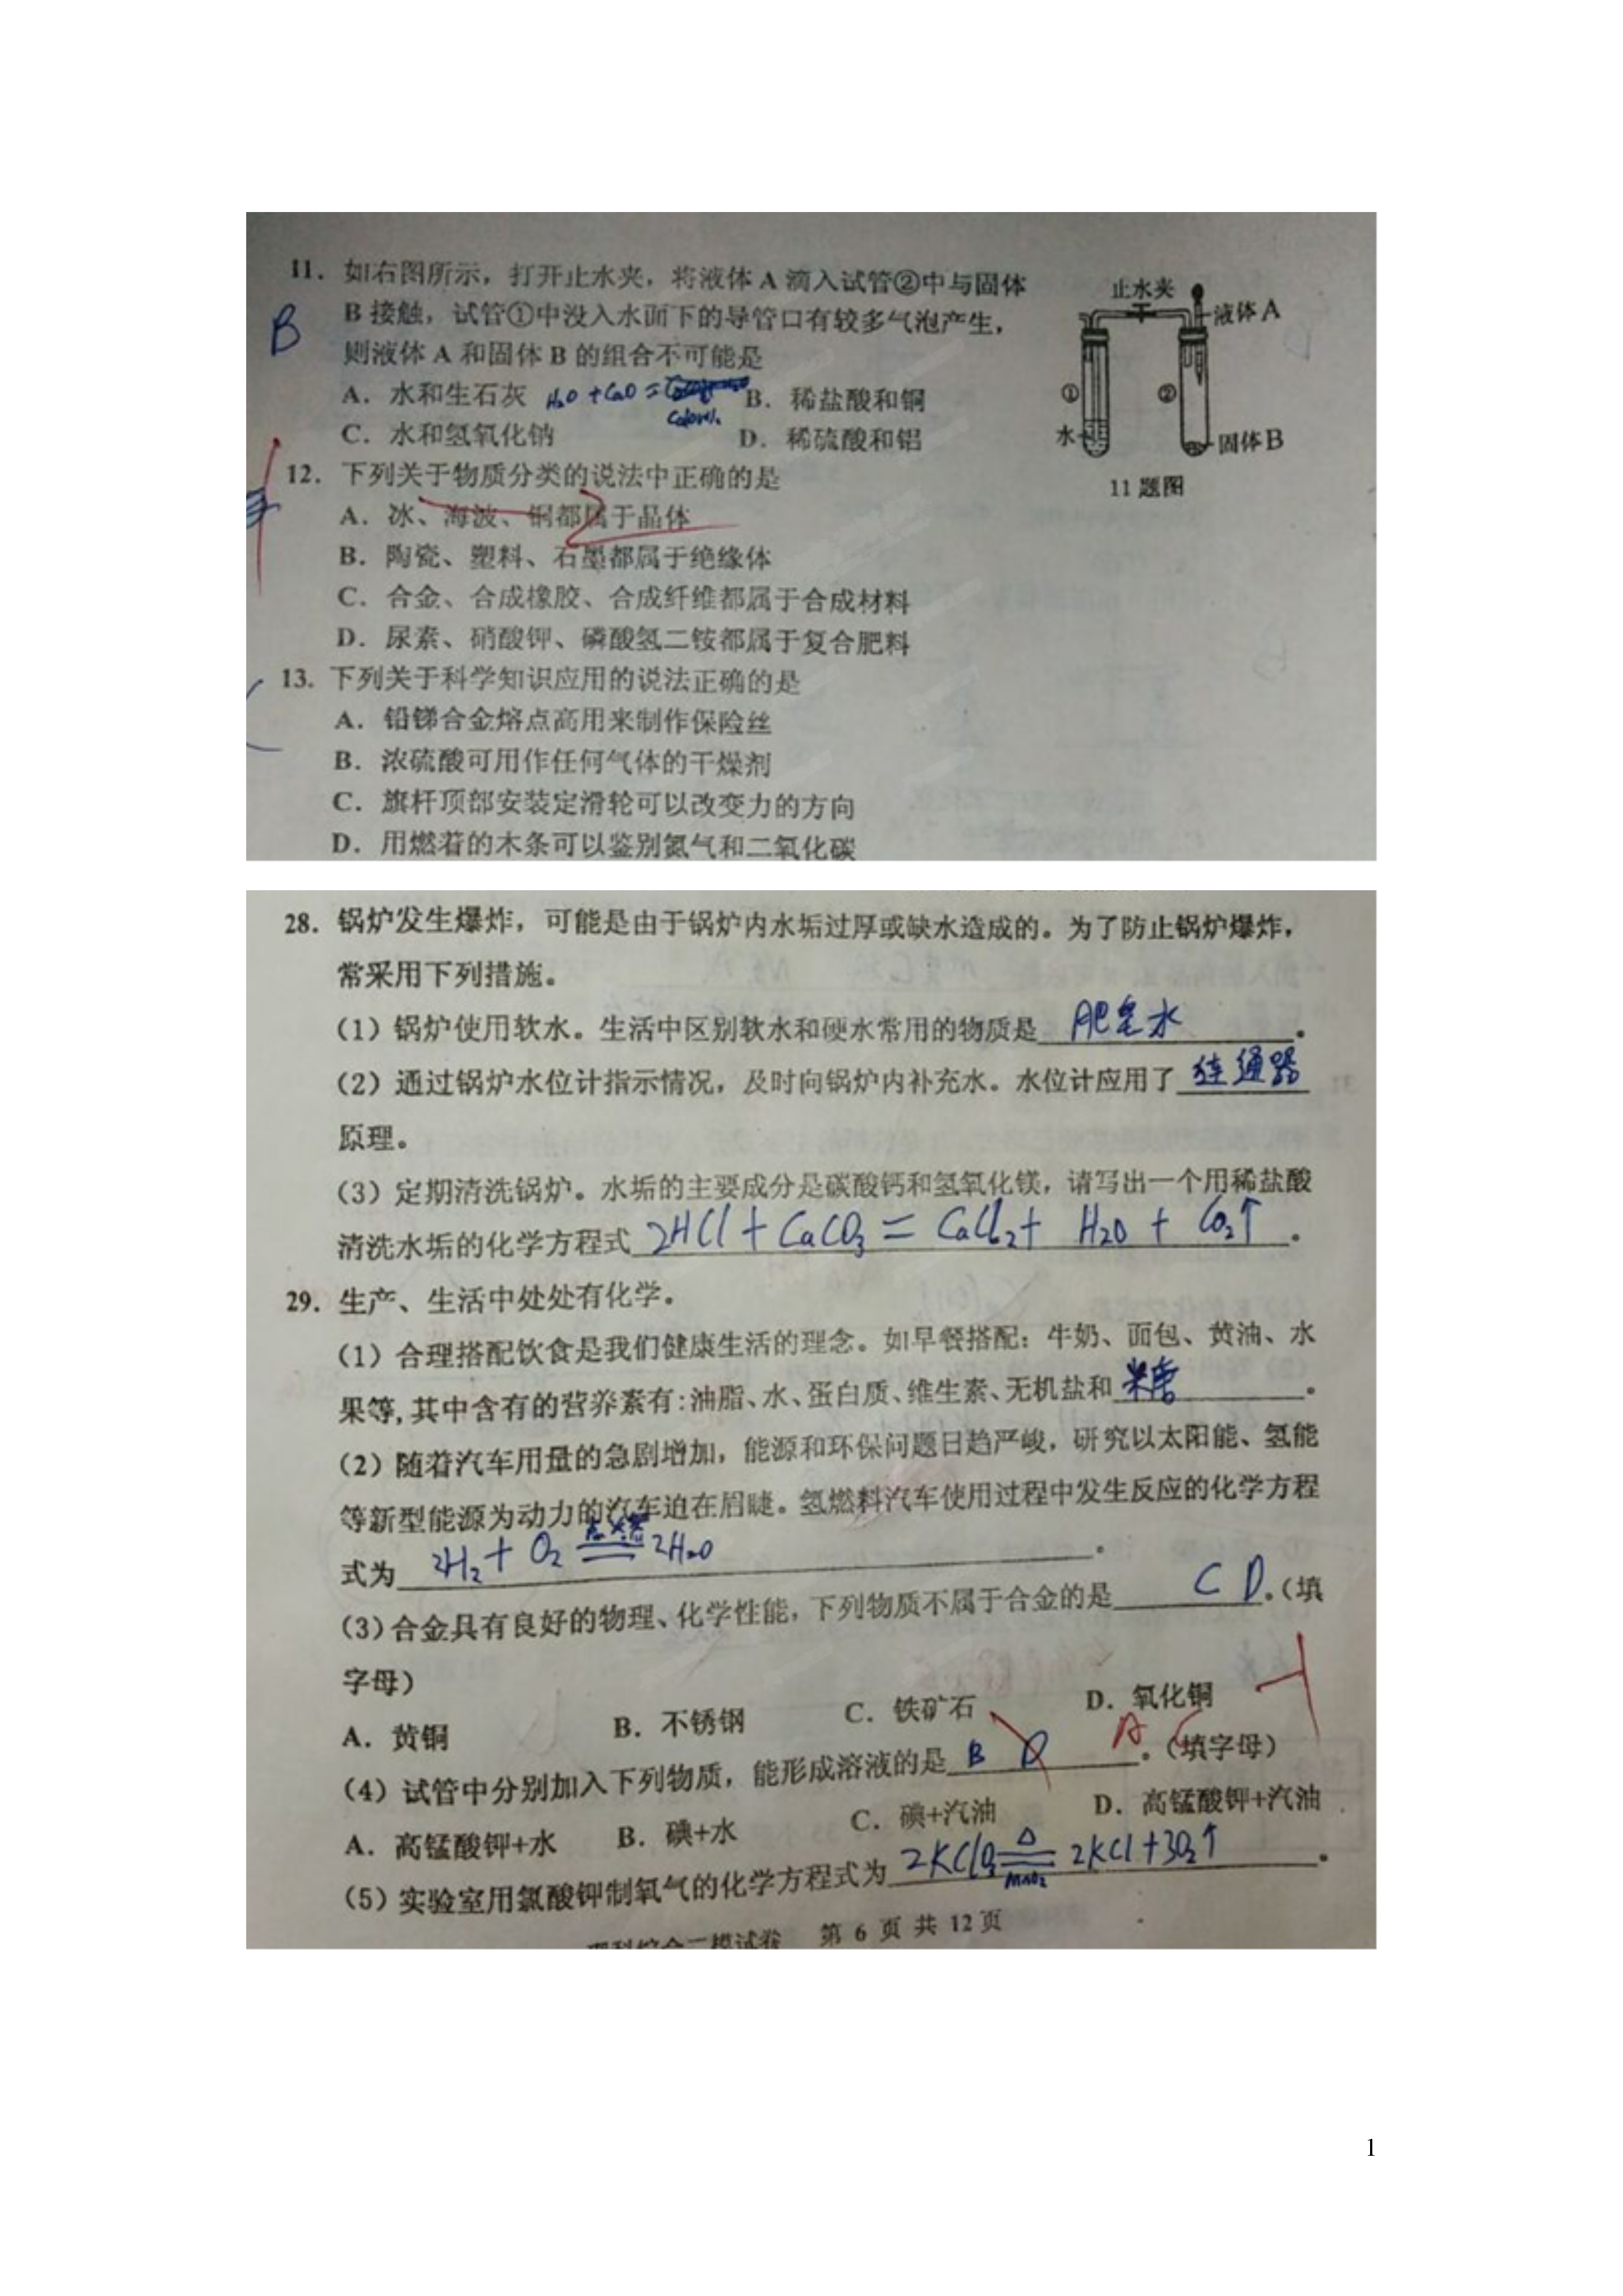 11. 如右图所示，打开止水夹，将液体 A 滴入试管②中与固体
B 接触，试管①中没入水面下的导管口有较多气泡产生，
则液体 A 和固体 B 的组合不可能是
B
A. 水和生石灰 H₂O + CaO = B. 稀盐酸和铜
Ca(OH)₂
C. 水和氢氧化钠 D. 稀硫酸和铝
止水夹
液体 A
①
②
水
固体 B
11 题图
12. 下列关于物质分类的说法中正确的是
A. 冰、海波、铜都属于晶体
B. 陶瓷、塑料、石墨都属于绝缘体
C. 合金、合成橡胶、合成纤维都属于合成材料
D. 尿素、硝酸钾、磷酸氢二铵都属于复合肥料
13. 下列关于科学知识应用的说法正确的是
A. 铅锑合金熔点高用来制作保险丝
B. 浓硫酸可用作任何气体的干燥剂
C. 旗杆顶部安装定滑轮可以改变力的方向
D. 用燃着的木条可以鉴别氮气和二氧化碳
28. 锅炉发生爆炸，可能是由于锅炉内水垢过厚或缺水造成的。为了防止锅炉爆炸，
常采用下列措施。
（1）锅炉使用软水。生活中区别软水和硬水常用的物质是 肥皂水 。
（2）通过锅炉水位计指示情况，及时向锅炉内补充水。水位计应用了 连通器
原理。
（3）定期清洗锅炉。水垢的主要成分是碳酸钙和氢氧化镁，请写出一个用稀盐酸
清洗水垢的化学方程式 2HCl + CaCO₃ = CaCl₂ + H₂O + CO₂↑ 。
29. 生产、生活中处处有化学。
（1）合理搭配饮食是我们健康生活的理念。如早餐搭配：牛奶、面包、黄油、水
果等，其中含有的营养素有：油脂、水、蛋白质、维生素、无机盐和 糖 。
（2）随着汽车用量的急剧增加，能源和环保问题日趋严峻，研究以太阳能、氢能
等新型能源为动力的汽车迫在眉睫。氢燃料汽车使用过程中发生反应的化学方程
式为 2H₂ + O₂ 点燃 2H₂O 。
（3）合金具有良好的物理、化学性能，下列物质不属于合金的是 C D 。（填
字母）
A. 黄铜 B. 不锈钢 C. 铁矿石 D. 氧化铜
（4）试管中分别加入下列物质，能形成溶液的是 B D A C 。（填字母）
A. 高锰酸钾+水 B. 碘+水 C. 碘+汽油 D. 高锰酸钾+汽油
（5）实验室用氯酸钾制氧气的化学方程式为 2KClO₃ △ MnO₂ 2KCl + 3O₂↑ 。
理科综合二模试卷 第 6 页 共 12 页
1